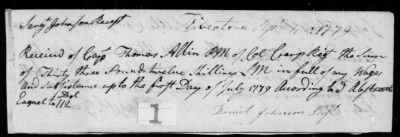 Sergt Johnson Recept
Tiverton 1779
Received of Capt Thomas Allin PM of Col Crary Regt the Sum
of Thirty three Pounds twelve Shillings LM in full of my Wages
and Subsistance up to the first Day of July 1779 Acording to Abstracts
Dol
Equel to 112
Daniel Johnson Sergt
1